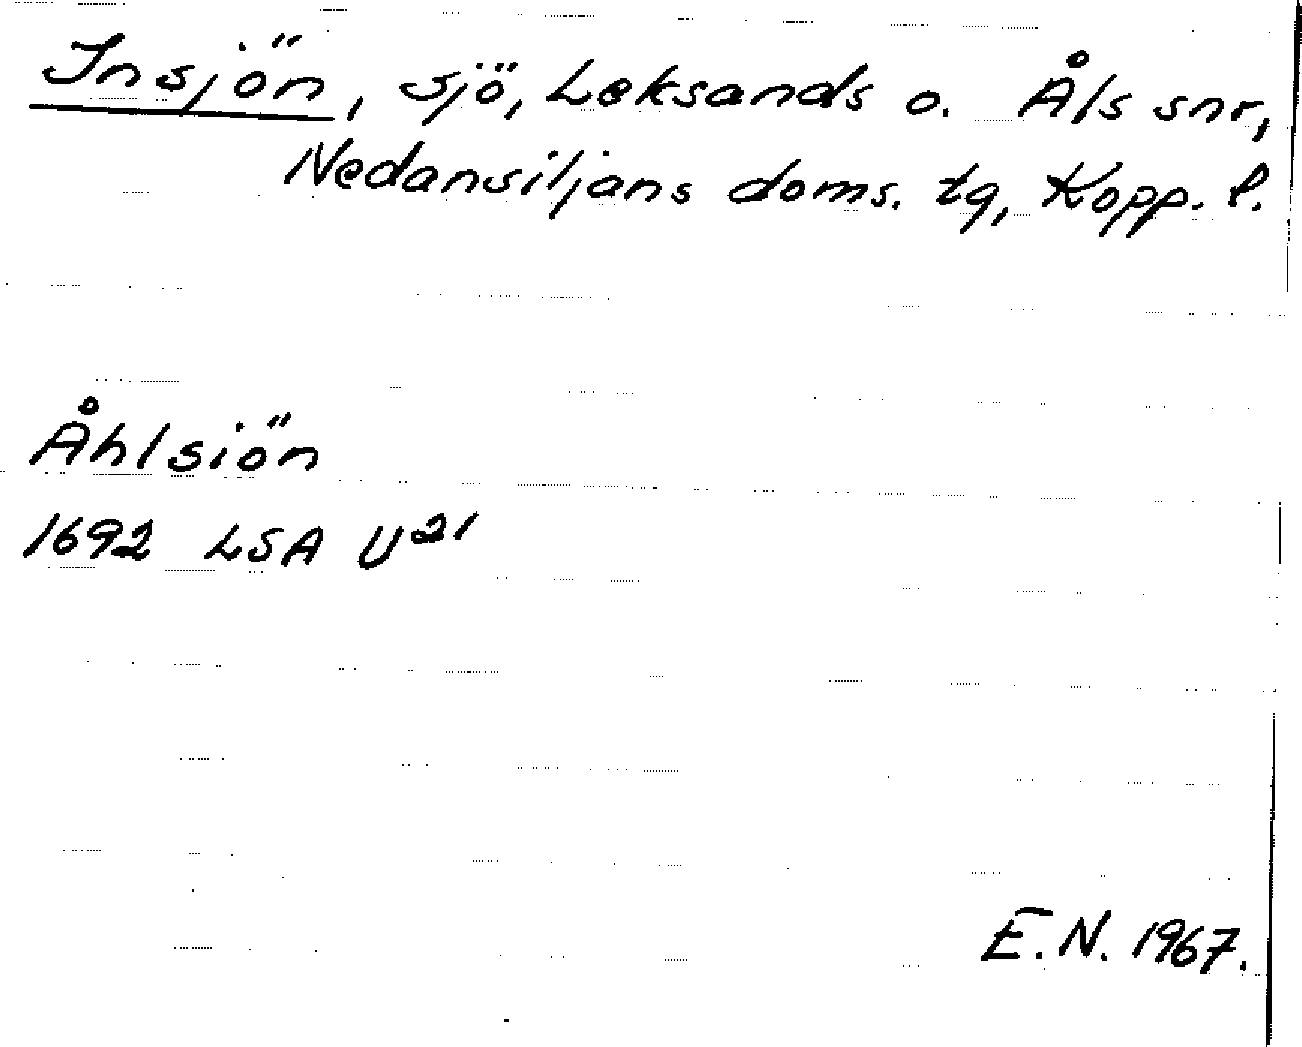 Insjön, sjö, Leksands o. Åls snr,
Nedansiljans doms. tg, Kopp. l.
Åhlsiön
1692 LSA U21
E.N. 1967.